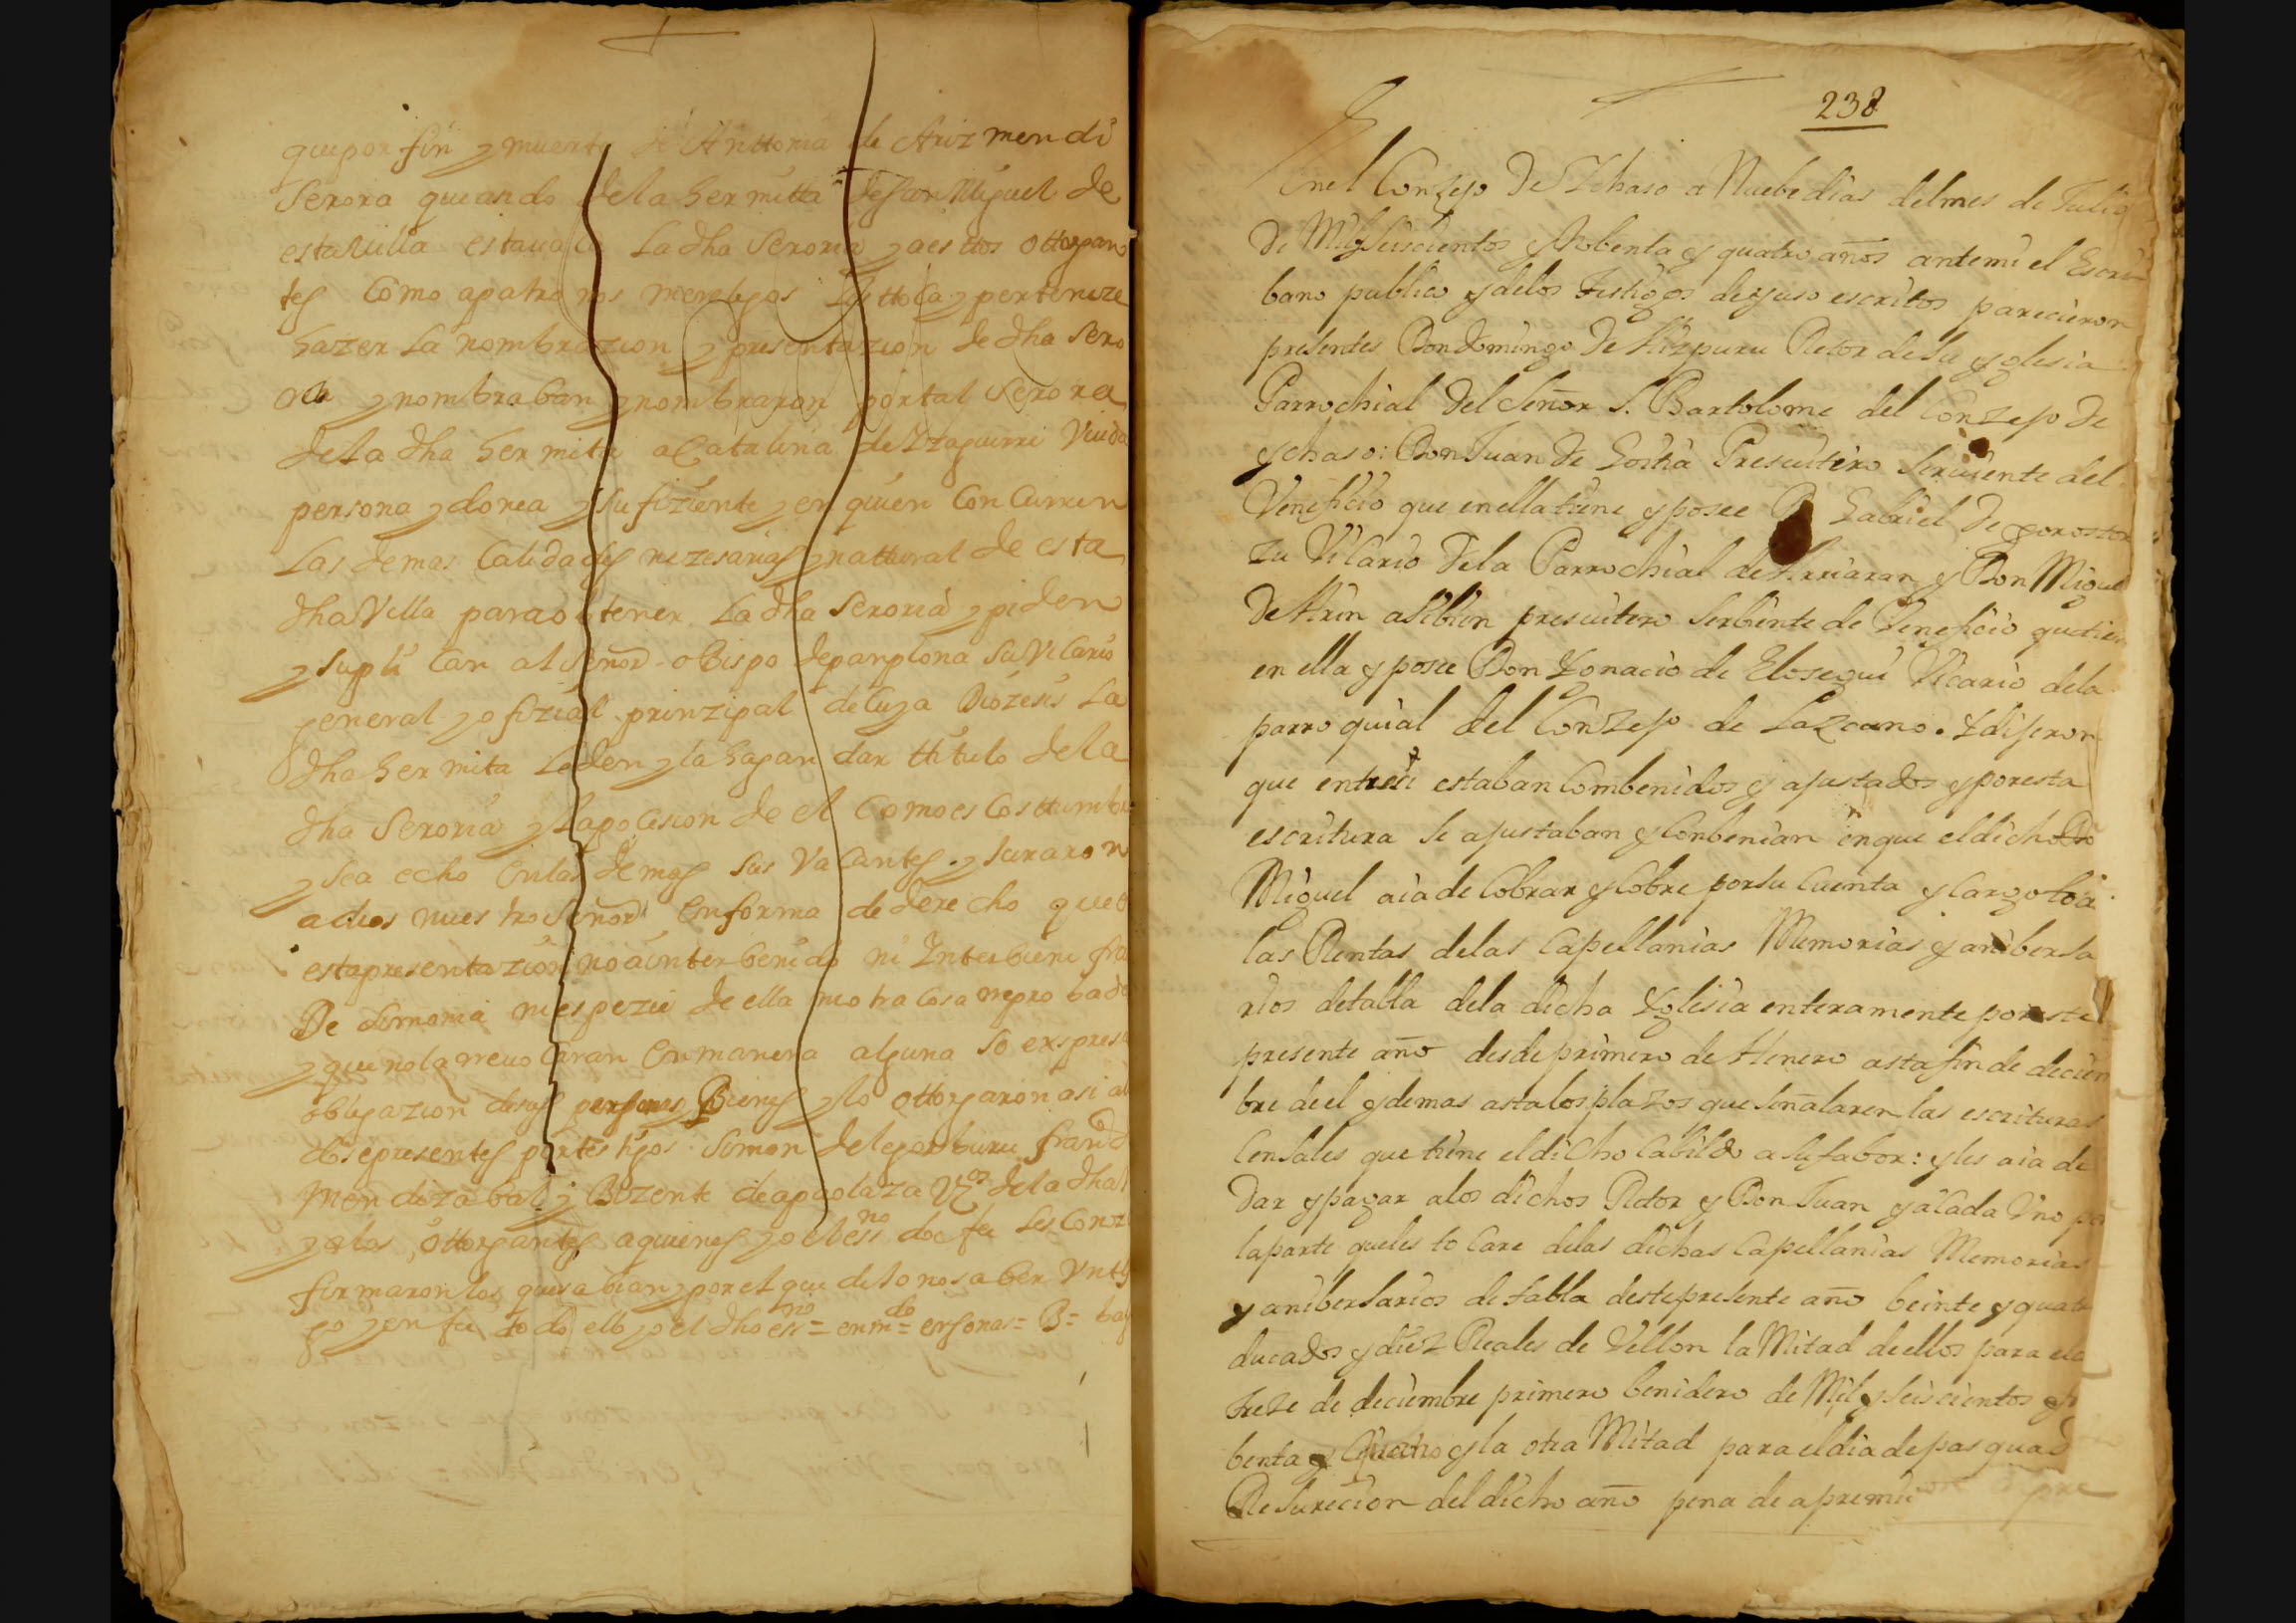 que por fin y muerte de Anttonia de Arizmendi
Serora que ando dela hermitta de San Miguel de
esta Villa estaua La dha Seroria y a esttos ottorgan
tes Como apatronos merelegos Les ttoca y perteneze
hazer La nombrazion y presentazion de dha Sero
ra y nombraban y nombraron por tal Serora
dela dha hermita a Catalina de Yzaguirri Viuda
persona ydonea y sufiziente y en quien Concurren
Las demas Calidades nezesarias y nattural de esta
dha Villa para obtener La dha Seroria y piden
y supli can al Señor obispo de panplona Su Vicario
general y ofizial prinzipal de Cuya Diozesis La
dha hermita Le den y la hagan dar ttitulo dela
dha Seroria y La poCesion de el Como es Costtumbre
y sea echo en las demas sus VaCantes y Juraron
a dios nuestro Señor en forma de derecho que en
esta presentazion no a interbenido ni Interbiene fra
De Simonia ni espezie de ella ni otra Cosa repro bada
y que no la rreuoCaran en manera alguna So expresa
obligazion de sus personas Bienes y lo ottorgaron asi
do presentes por testigos Simon de legorburu franco
Mendizabal y Bizente de apaolaza Vzos dela dha
y a los ottorgantes a quienes yo el essno doi fee Les Conoz
firmaron los que sabian y por el que dijo no saber Vn tes
go y en fee de todo ello yo el dho essno = enmdo = ersonas = B =
238
En el Conzejo De Ychaso a Nuebe dias del mes de Julio
De Mil y seiscientos y Nobenta y quatro años ante mi el Escri
bano publico y de los Testigos de yuso escritos parecieron
presentes Don Domingo De Aizpuru Retor de la yglesia
Parrochial Del Señor S. Bartolome del Conzejo De
ychaso: Don Juan De Goitia Presuitero Seruiente del
Veneficio que en ella tiene y posee D. Gabriel De gorostor
zu Vicario Dela Parrochial de Arriaran y Don Miguel
De Arin assi bien presuitero Serbiente de Veneficio que tiene
en ella y posee Don Ygnacio de Elosegui Vicario dela
parroquial del Conzejo de Lazcano. Y dijeron
que entresi estaban Combenidos y ajustados y por esta
escritura se ajustaban y Conbenian en que el dicho Dn
Miguel aia de Cobrar y Cobre por su Cuenta y Cargo todas
las Rentas delas Capellanias Memorias y anibersa
rios de tabla dela dicha Yglesia enteramente por este
presente año desde primero de Henero asta fin de decien
bre de el y demas asta los plazos que señalaren las escrituras
Censales que tiene el dicho Cabildo a su fabor: y les aia de
Dar y pagar a los dichos Retor y Don Juan y a Cada Vno por
la parte que les to Care delas dichas Capellanias Memorias
y anibersarios de tabla deste presente año beinte y quatro
ducados y diez Reales de Vellon la Mitad de ellos para el
Treze de deciembre primero benidero de Mil y seiscientos y no
benta y Quatro y la otra Mitad para el dia de pasqua d
Resurecion del dicho año pena de apremio